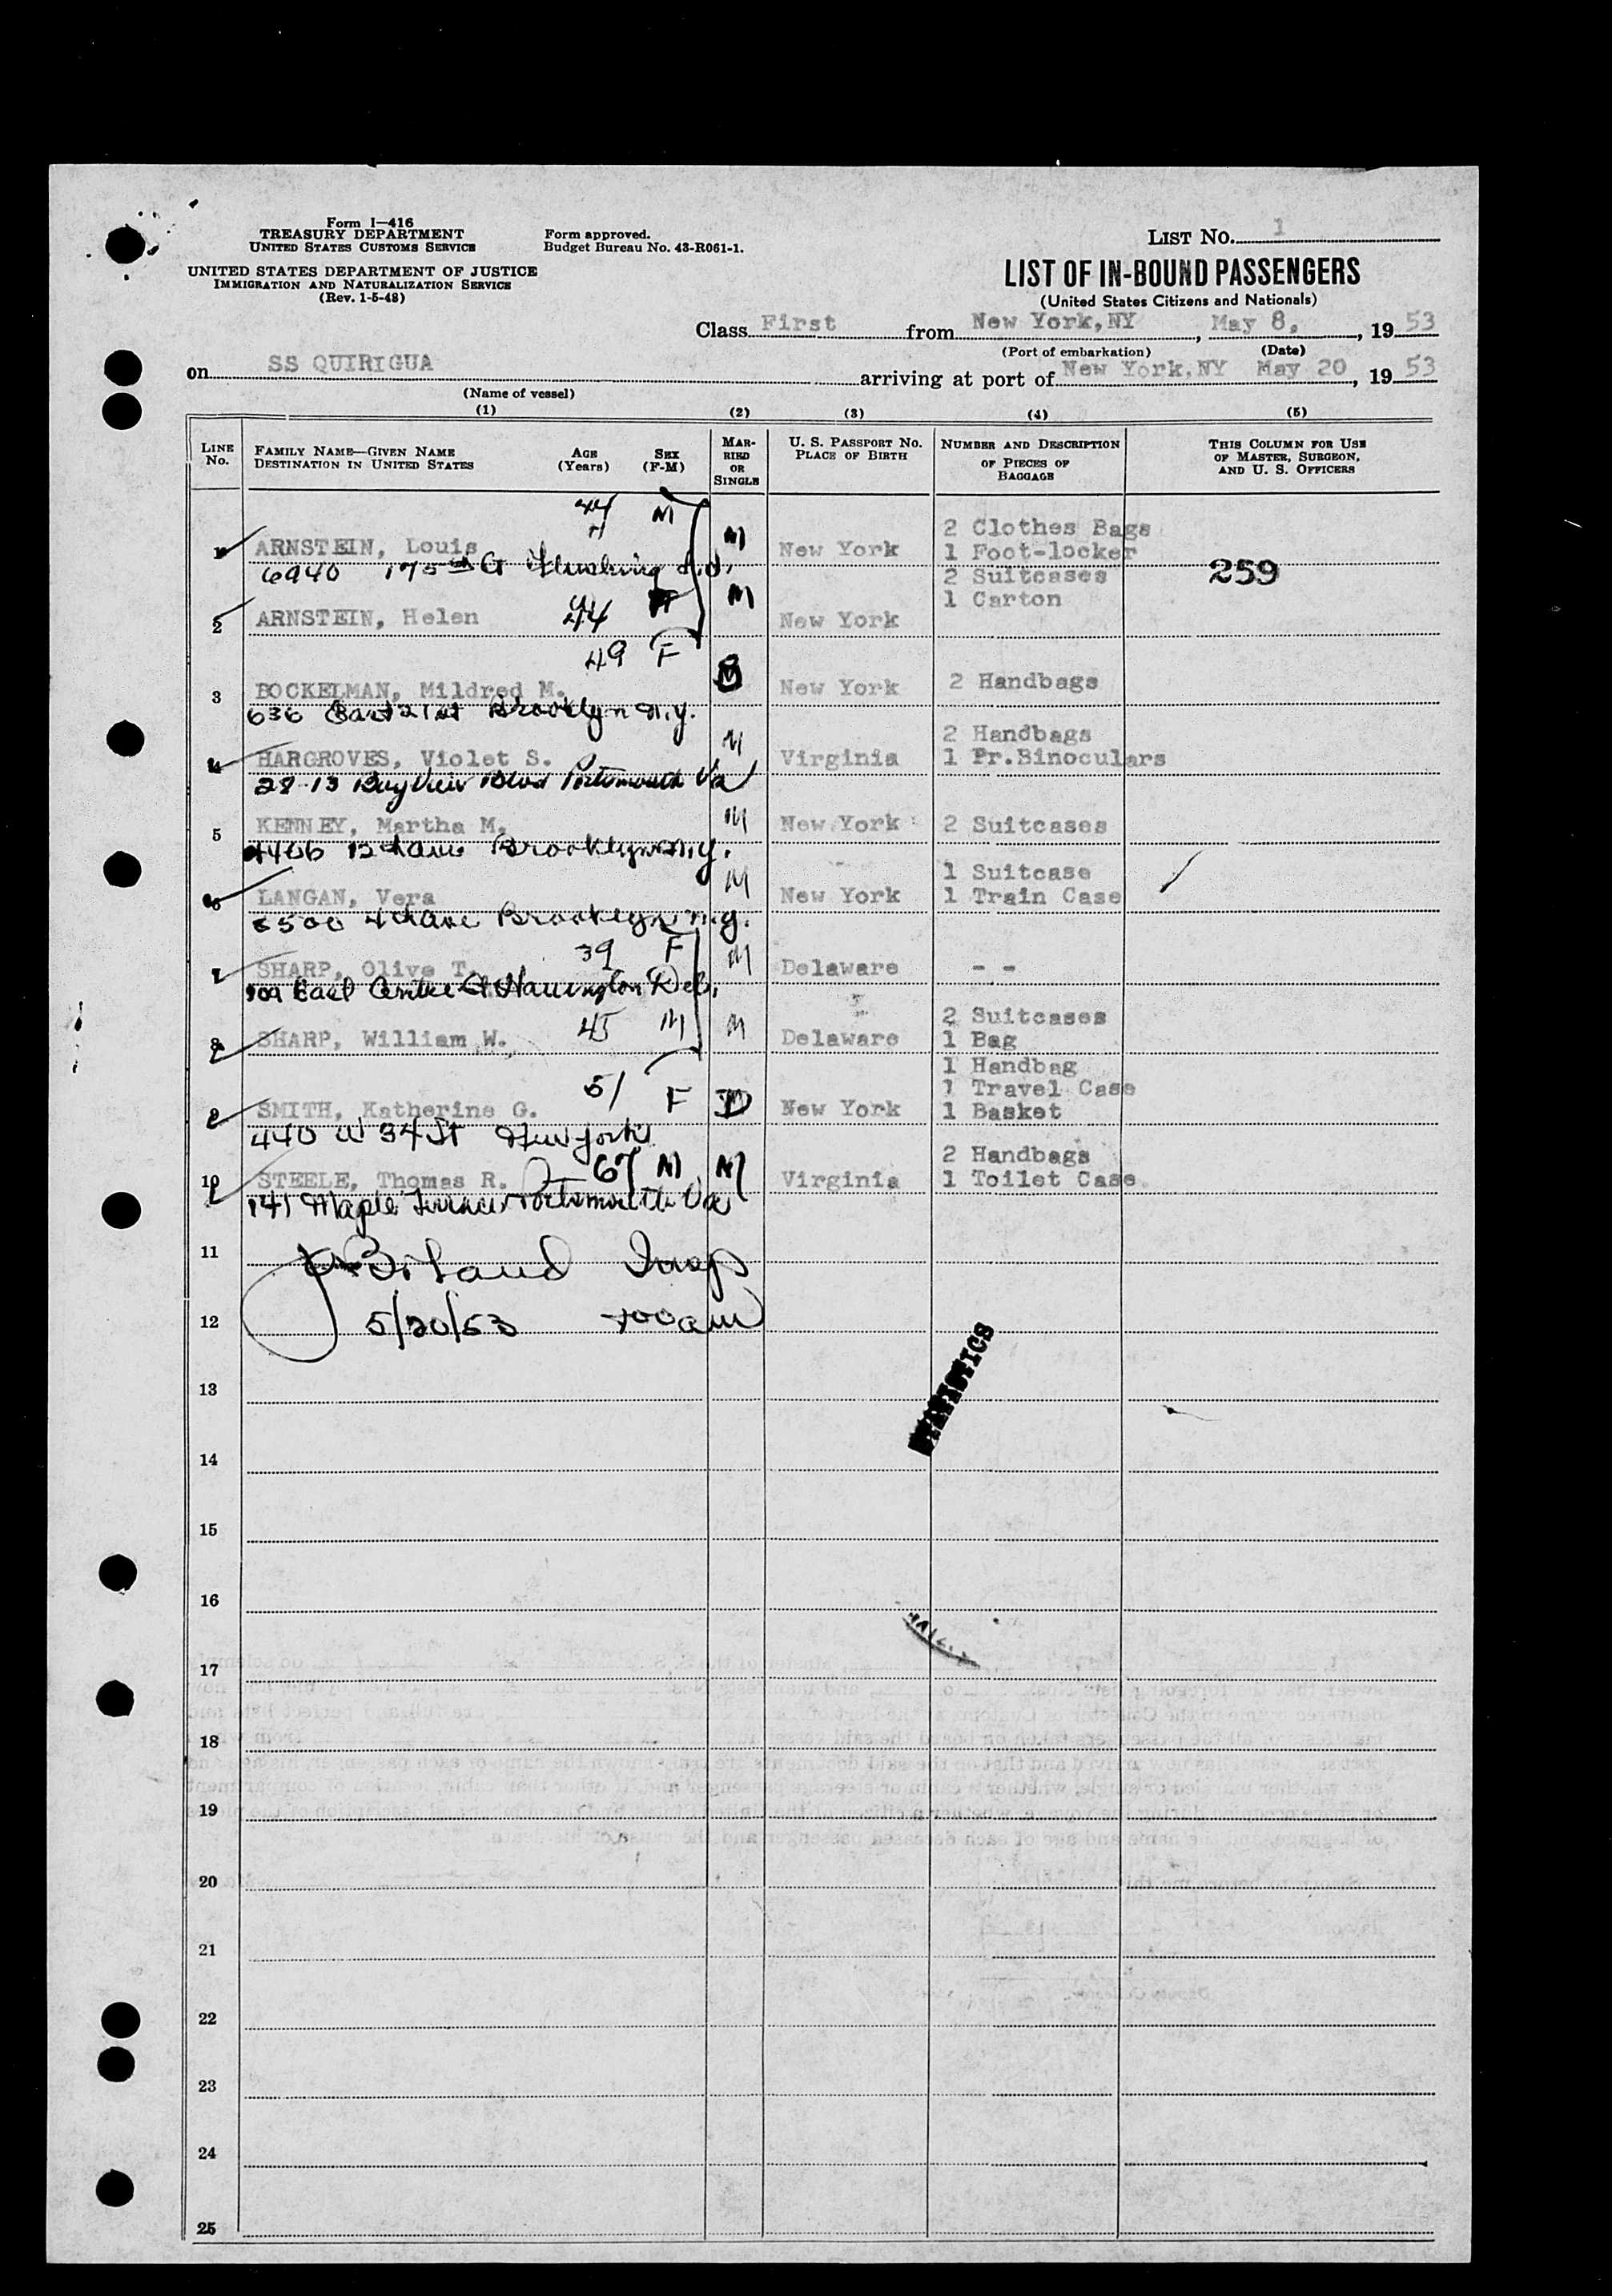 Form I—416
TREASURY DEPARTMENT
UNITED STATES CUSTOMS SERVICE
UNITED STATES DEPARTMENT OF JUSTICE
IMMIGRATION AND NATURALIZATION SERVICE
(Rev. 1-5-48)
Form approved.
Budget Bureau No. 43-R061-1.
LIST NO. 1
LIST OF IN-BOUND PASSENGERS
(United States Citizens and Nationals)
Class First from New York, NY, May 8, , 19 53
(Port of embarkation) (Date)
on SS QUIRIGUA arriving at port of New York, NY May 20, 19 53
(Name of vessel)
(1) (2) (3) (4) (5)
LINE NO.
FAMILY NAME—GIVEN NAME
DESTINATION IN UNITED STATES
AGE (Years)
SEX (F-M)
MARRIED OR SINGLE
U. S. PASSPORT NO.
PLACE OF BIRTH
NUMBER AND DESCRIPTION
OF PIECES OF
BAGGAGE
THIS COLUMN FOR USE
OF MASTER, SURGEON,
AND U. S. OFFICERS
44 M
2 Clothes Bags
1 ARNSTEIN, Louis M New York 1 Foot-locker
6940 175th St Flushing 2 Suitcases 259
1 Carton
2 ARNSTEIN, Helen 44 M New York
49 F
3 BOCKELMAN, Mildred M. New York 2 Handbags
636 East 21st Brooklyn N.Y.
2 Handbags
4 HARGROVES, Violet S. M Virginia 1 Pr.Binoculars
28 13 Bay View Blvd Portsmouth Va
5 KENNEY, Martha M. M New York 2 Suitcases
Brooklyn N.Y.
1 Suitcase
6 LANGAN, Vera M New York 1 Train Case
6500 4th Ave Brooklyn N.Y.
39 F
7 SHARP, Olive T. M Delaware - -
East Center St Harrington Del.
2 Suitcases
8 SHARP, William W. 45 M M Delaware 1 Bag
1 Handbag
1 Travel Case
9 SMITH, Katherine G. 51 F D New York 1 Basket
440 W 34 St New York
2 Handbags
10 STEELE, Thomas R. 67 M M Virginia 1 Toilet Case
141 Maple Portsmouth Va
11 Insp
12 5/20/53 am
STATISTICS
13
14
15
16
17
18
19
20
21
22
23
24
25